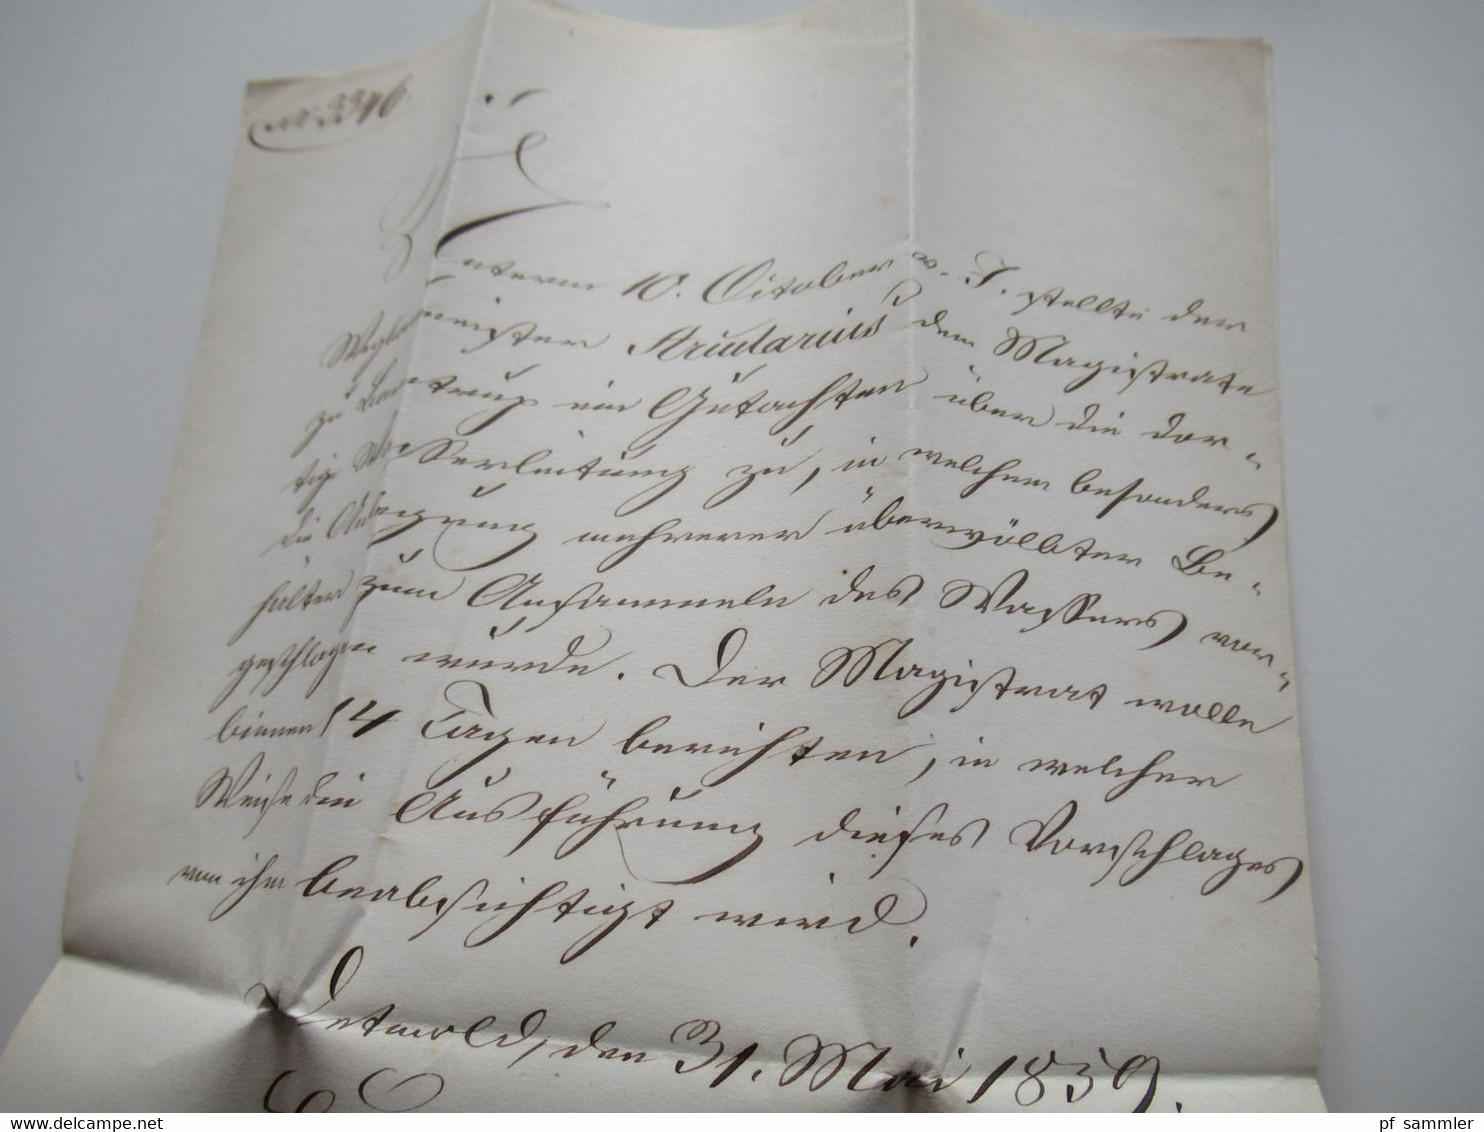 No 3346.
Unterm 10. October v. J. stellte der
meister dem Magistrate
zu Barntrup ein Gutachten über die dor-
tige Wasserleitung zu, in welchem besonders
die Anlegung mehrerer überwölbter Be-
hälter zum Ansammeln des Wassers vor-
geschlagen wurde. Der Magistrat wolle
binnen 14 Tagen berichten, in welcher
Weise die Ausführung dieses Vorschlages
von ihm beabsichtigt wird.
Detmold, den 31. Mai 1859.
www.delcampe.net
pf_sammler